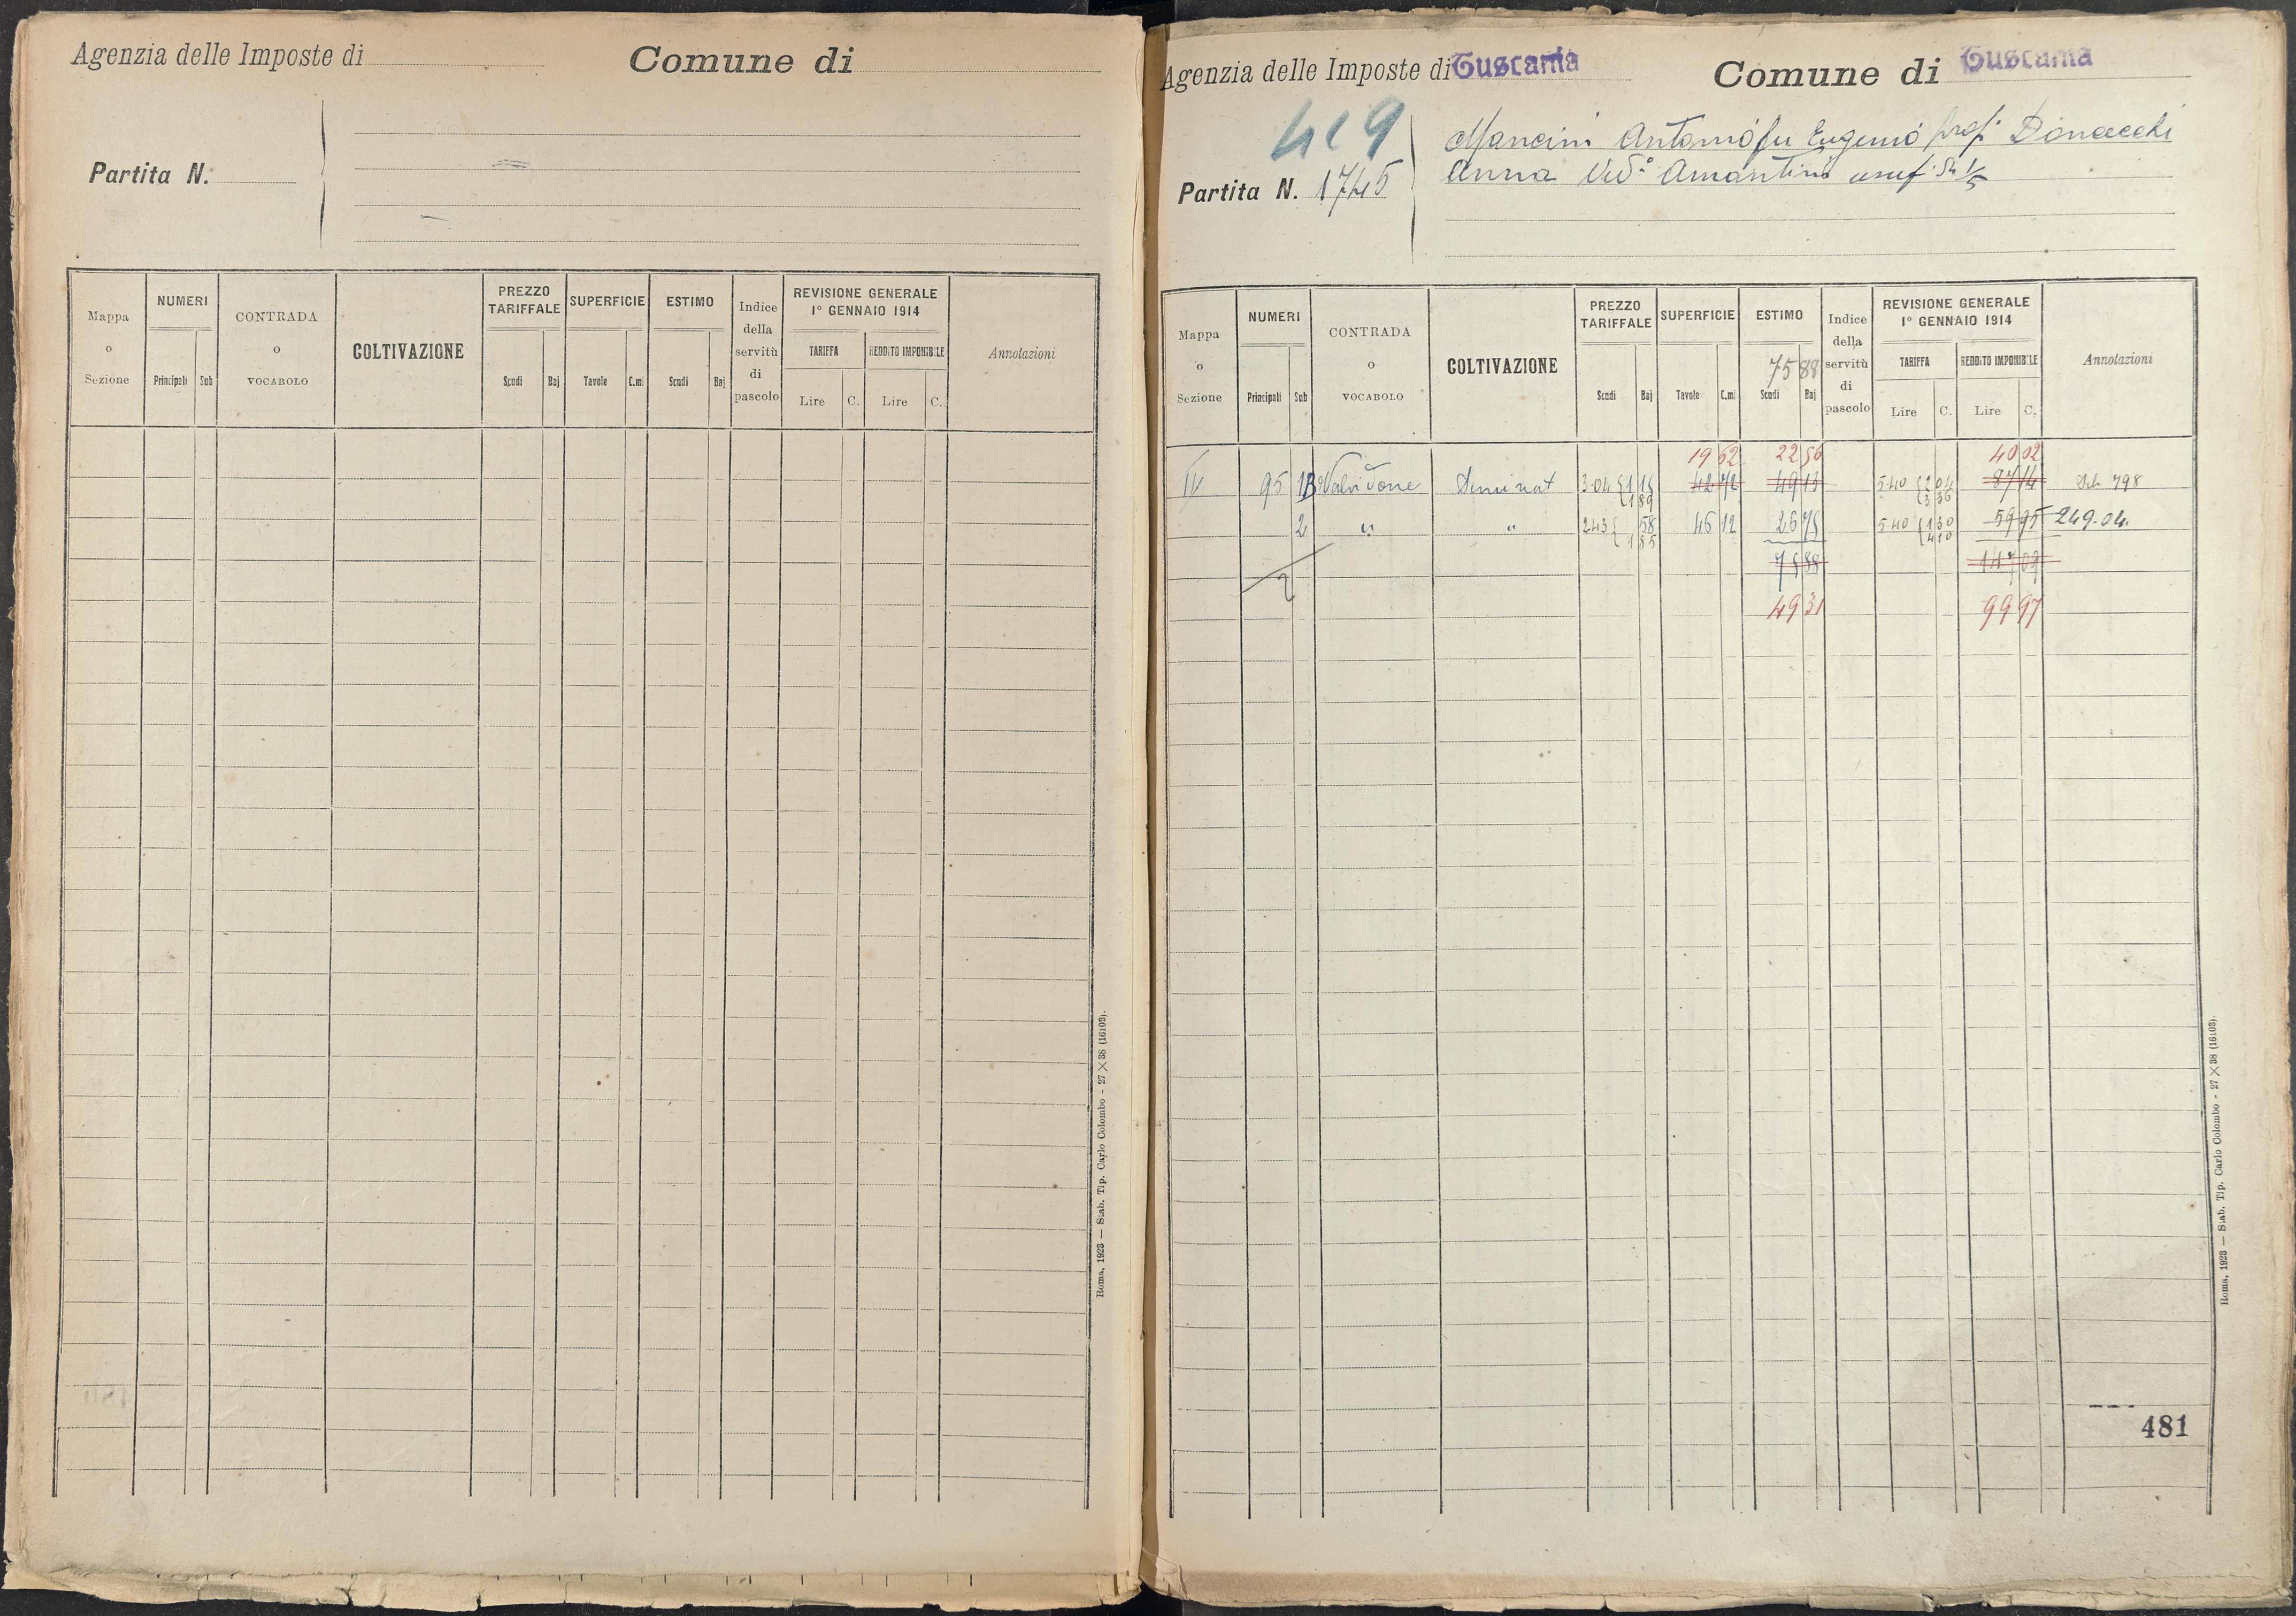 Agenzia delle Imposte di
Comune di
Partita N.
Mappa o Sezione
NUMERI
Principali Sub
CONTRADA o VOCABOLO
COLTIVAZIONE
PREZZO TARIFFALE
Scudi Baj
SUPERFICIE
Tavole C.mi
ESTIMO
Scudi Baj
Indice della servitù di pascolo
REVISIONE GENERALE
1º GENNAIO 1914
TARIFFA REDDITO IMPONIBILE
Lire C. Lire C.
Annotazioni
Roma, 1923 — Stab. Tip. Carlo Colombo - 27 X 38 (16103).
Agenzia delle Imposte di Tuscania
Comune di Tuscania
419
Partita N. 1745
Mancini Antonio fu Eugenio prop. Donacchi
Anna Ved. Amantini usuf. 1/5
Mappa o Sezione
NUMERI
Principali Sub
CONTRADA o VOCABOLO
COLTIVAZIONE
PREZZO TARIFFALE
Scudi Baj
SUPERFICIE
Tavole C.mi
ESTIMO
75 88
Scudi Baj
Indice della servitù di pascolo
REVISIONE GENERALE
1º GENNAIO 1914
TARIFFA REDDITO IMPONIBILE
Lire C. Lire C.
Annotazioni
19 62 22 56 40 02
IV 95 1 Seminat 3.04 1 15 42 72 49 13 5.40 2 04 87 14 798
1 89 3 36
2 " " 2.43 58 46 12 26 75 5.40 1 30 59 95 249.04.
1 85 4 10
75 88 147 09
49 31 99 97
481
Roma, 1923 — Stab. Tip. Carlo Colombo - 27 X 38 (16103).